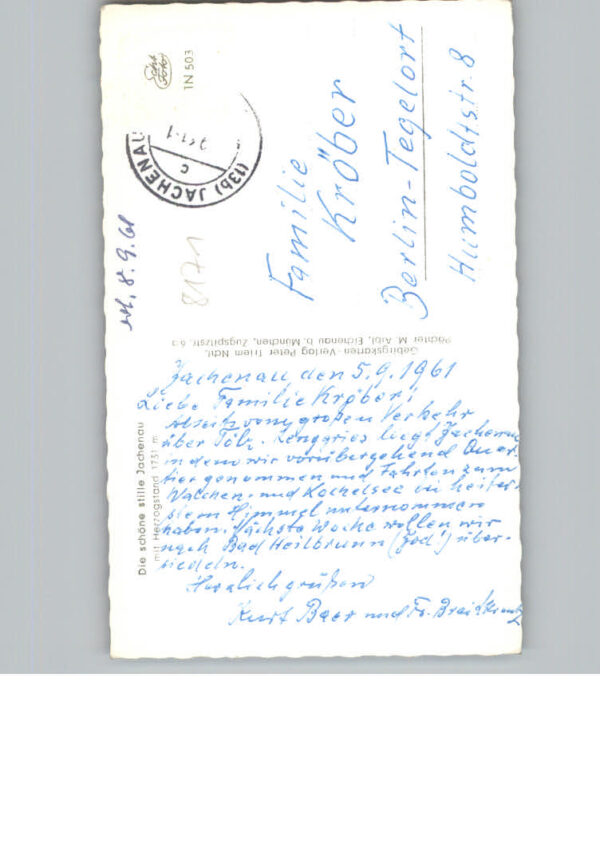 Jachenau, den 5.9.1961
Liebe Familie Kröber!
Abseits vom großen Verkehr
über Tölz-Lenggries liegt Jachenau
in dem wir vorübergehend Quar-
tier genommen und Fahrten zum
Walchen- und Kochelsee bei heiter-
stem Himmel unternommen
haben. Nächste Woche wollen wir
nach Bad Heilbrunn (Jod!) über-
siedeln.
Herzlich grüßen
Kurt Baer und Fr.
Familie
Kröber
Berlin-Tegelort
Humboldtstr. 8
8. 9. 61
8171
(13b) JACHENAU
c
TN 503
Gebirgskarten-Verlag Peter Triem Nchf.
Pächter M. Aibl, Eichenau b. München, Zugspitzstr. 63
Die schöne stille Jachenau
mit Herzogstand 1731 m